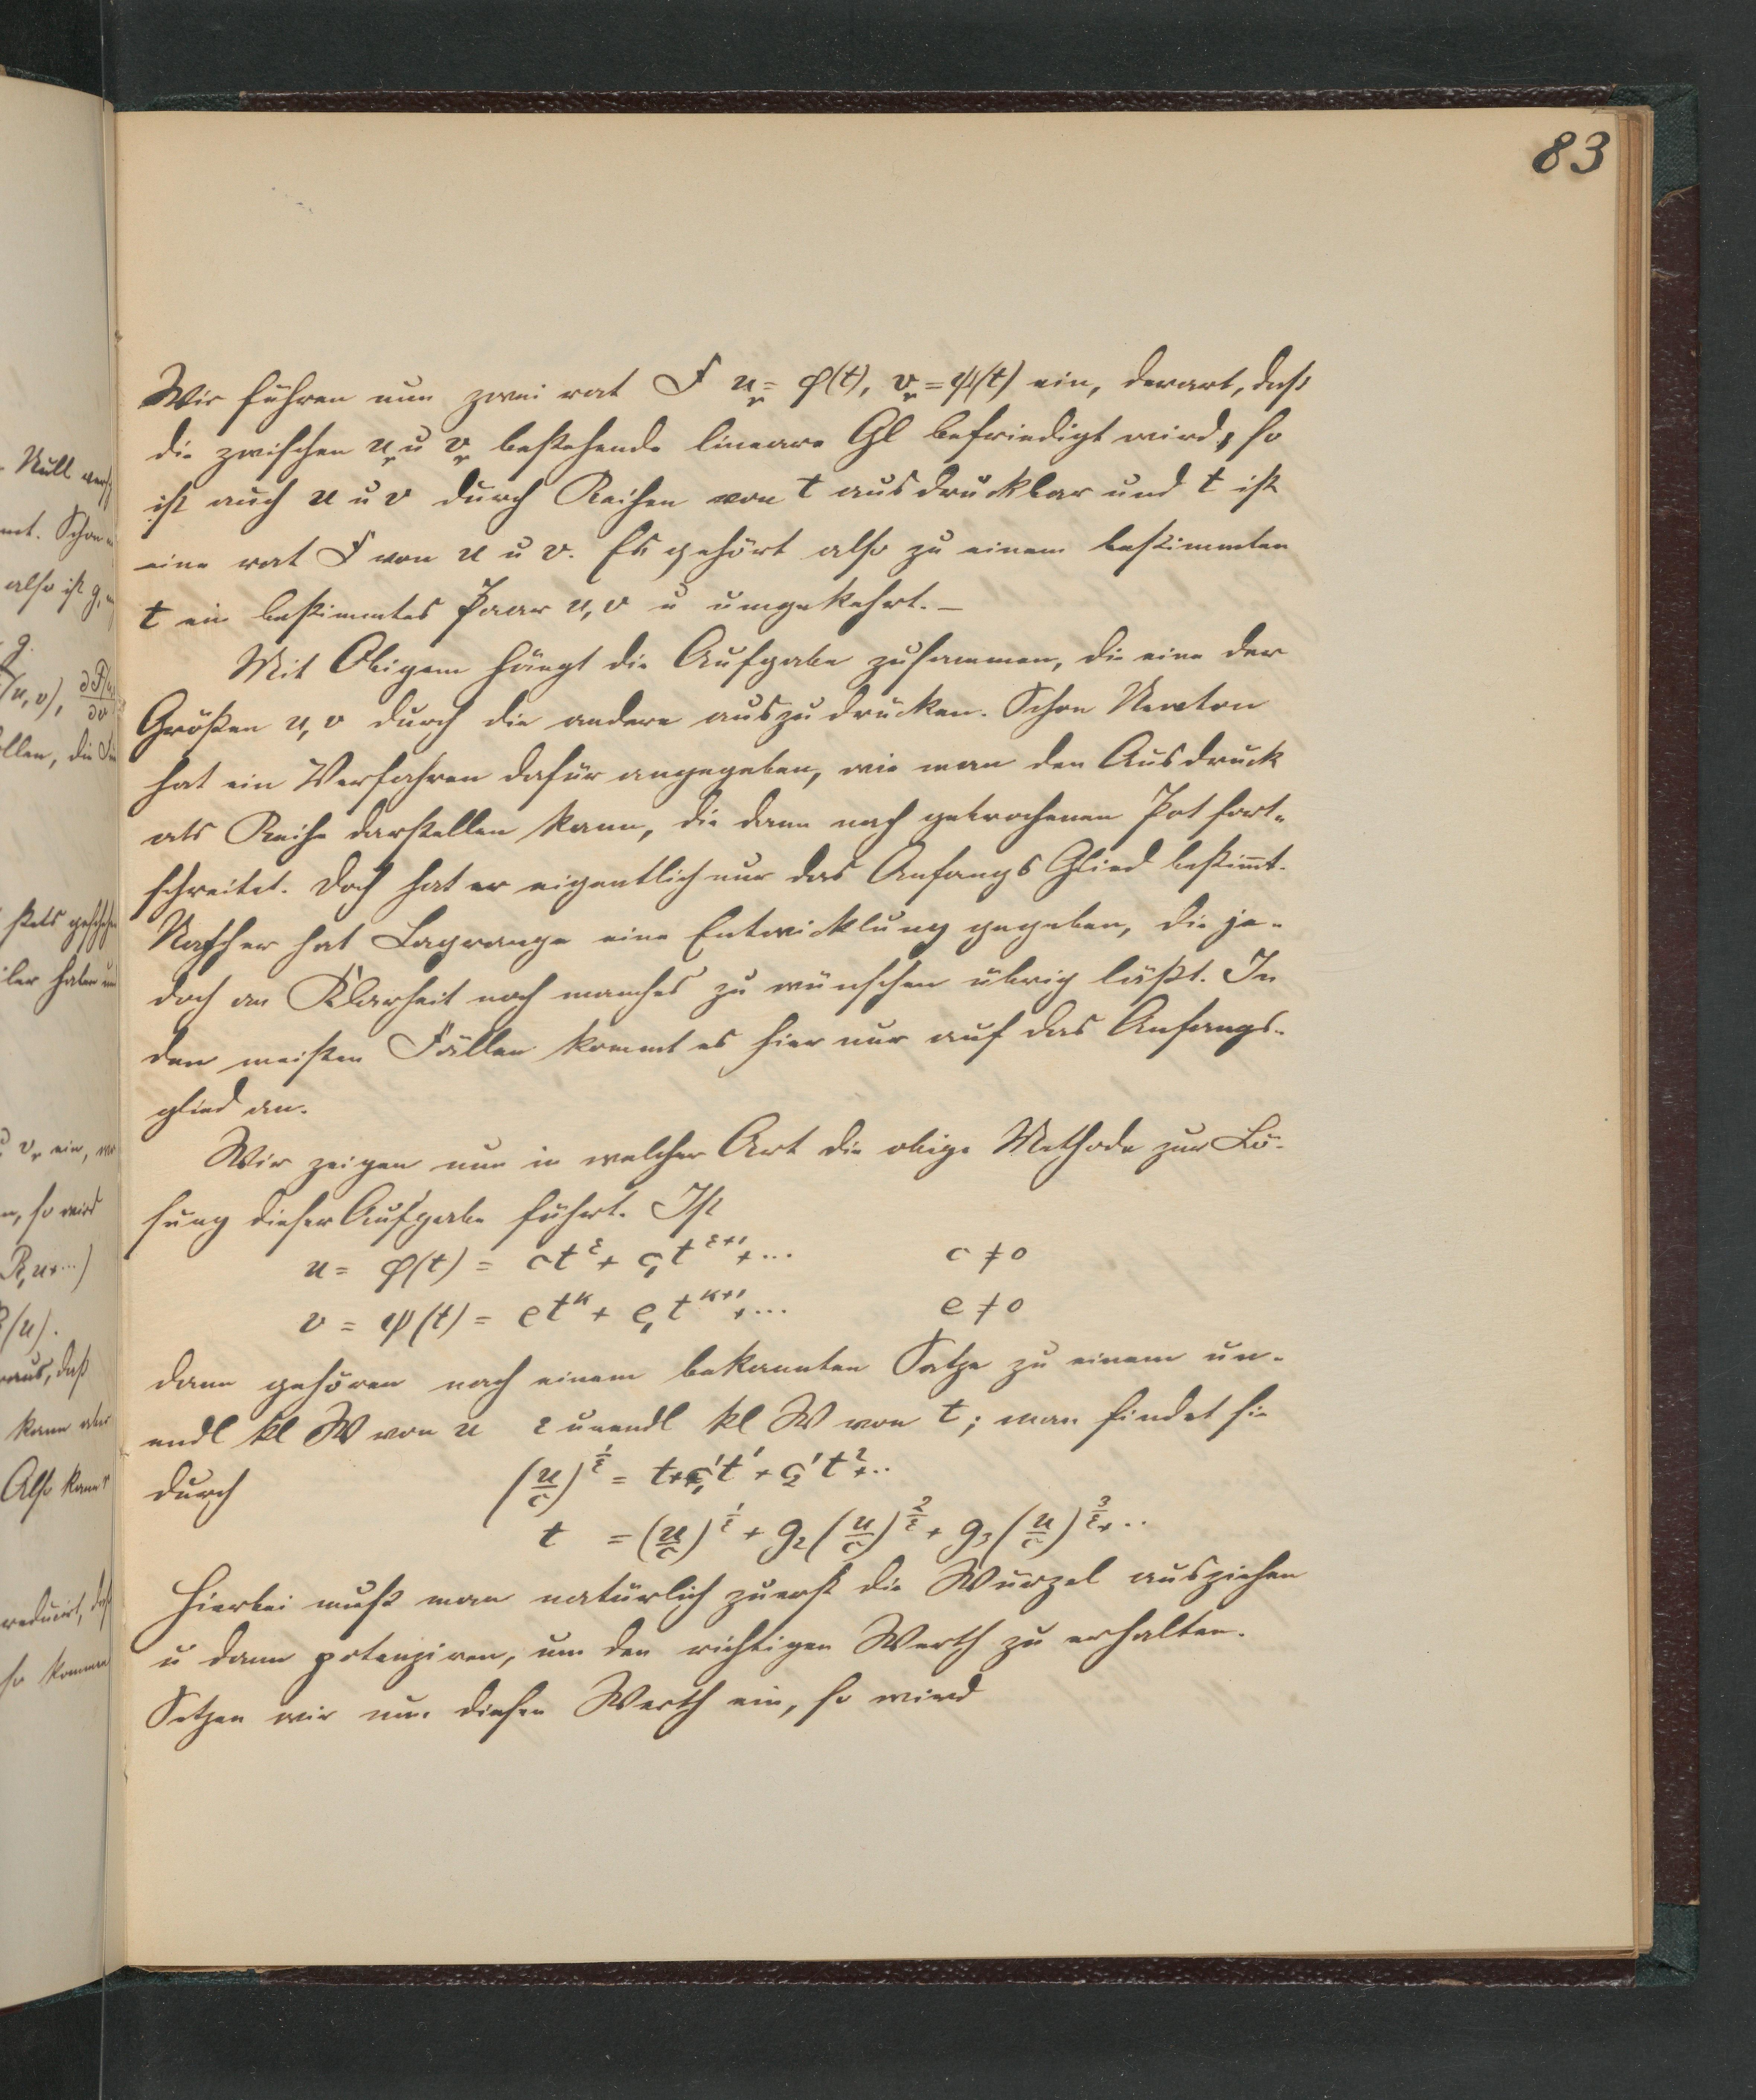 83
Wir führen nun zwei rat F u_r = φ(t), v_r = ψ(t) ein, derart, daß
die zwischen u_r u v_r bestehende lineare Gl befriedigt wird, so
ist auch u u v durch Reihen von t ausdrückbar und t ist
eine rat F von u u v. Es gehört also zu einem bestimmten
t ein bestimmtes Paar u, v u umgekehrt. —
Mit Obigem hängt die Aufgabe zusammen, die eine der
Größen u, v durch die andere auszudrücken. Schon Newton
hat ein Verfahren dafür angegeben, wie man den Ausdruck
als Reihe darstellen kann, die dann nach gebrochenen Pot fort-
schreitet. Doch hat er eigentlich nur das Anfangs Glied bestimmt.
Nachher hat Lagrange eine Entwicklung gegeben, die je-
doch an Klarheit noch manches zu wünschen übrig läßt. In
den meisten Fällen kommt es hier nur auf das Anfangs-
glied an.
Wir zeigen nun in welcher Art die obige Methode zur Lö-
sung dieser Aufgabe führt. Ist
u = φ(t) = ct^ε + c_1 t^{ε+1} + ... c ≠ 0
v = ψ(t) = et^κ + e_1 t^{κ+1} + ... e ≠ 0
dann gehören nach einem bekannten Satze zu einem un-
endl kl W von u ε unendl kl W von t; man findet sie
durch (u/c)^{1/ε} = t + c_1' t' + c_2' t^2 + ..
t = (u/c)^{1/ε} + g_2 (u/c)^{2/ε} + g_3 (u/c)^{3/ε} + ..
Hierbei muß man natürlich zuerst die Wurzel ausziehen
u dann potenziren, um den richtigen Werth zu erhalten.
Setzen wir nun diesen Werth ein, so wird